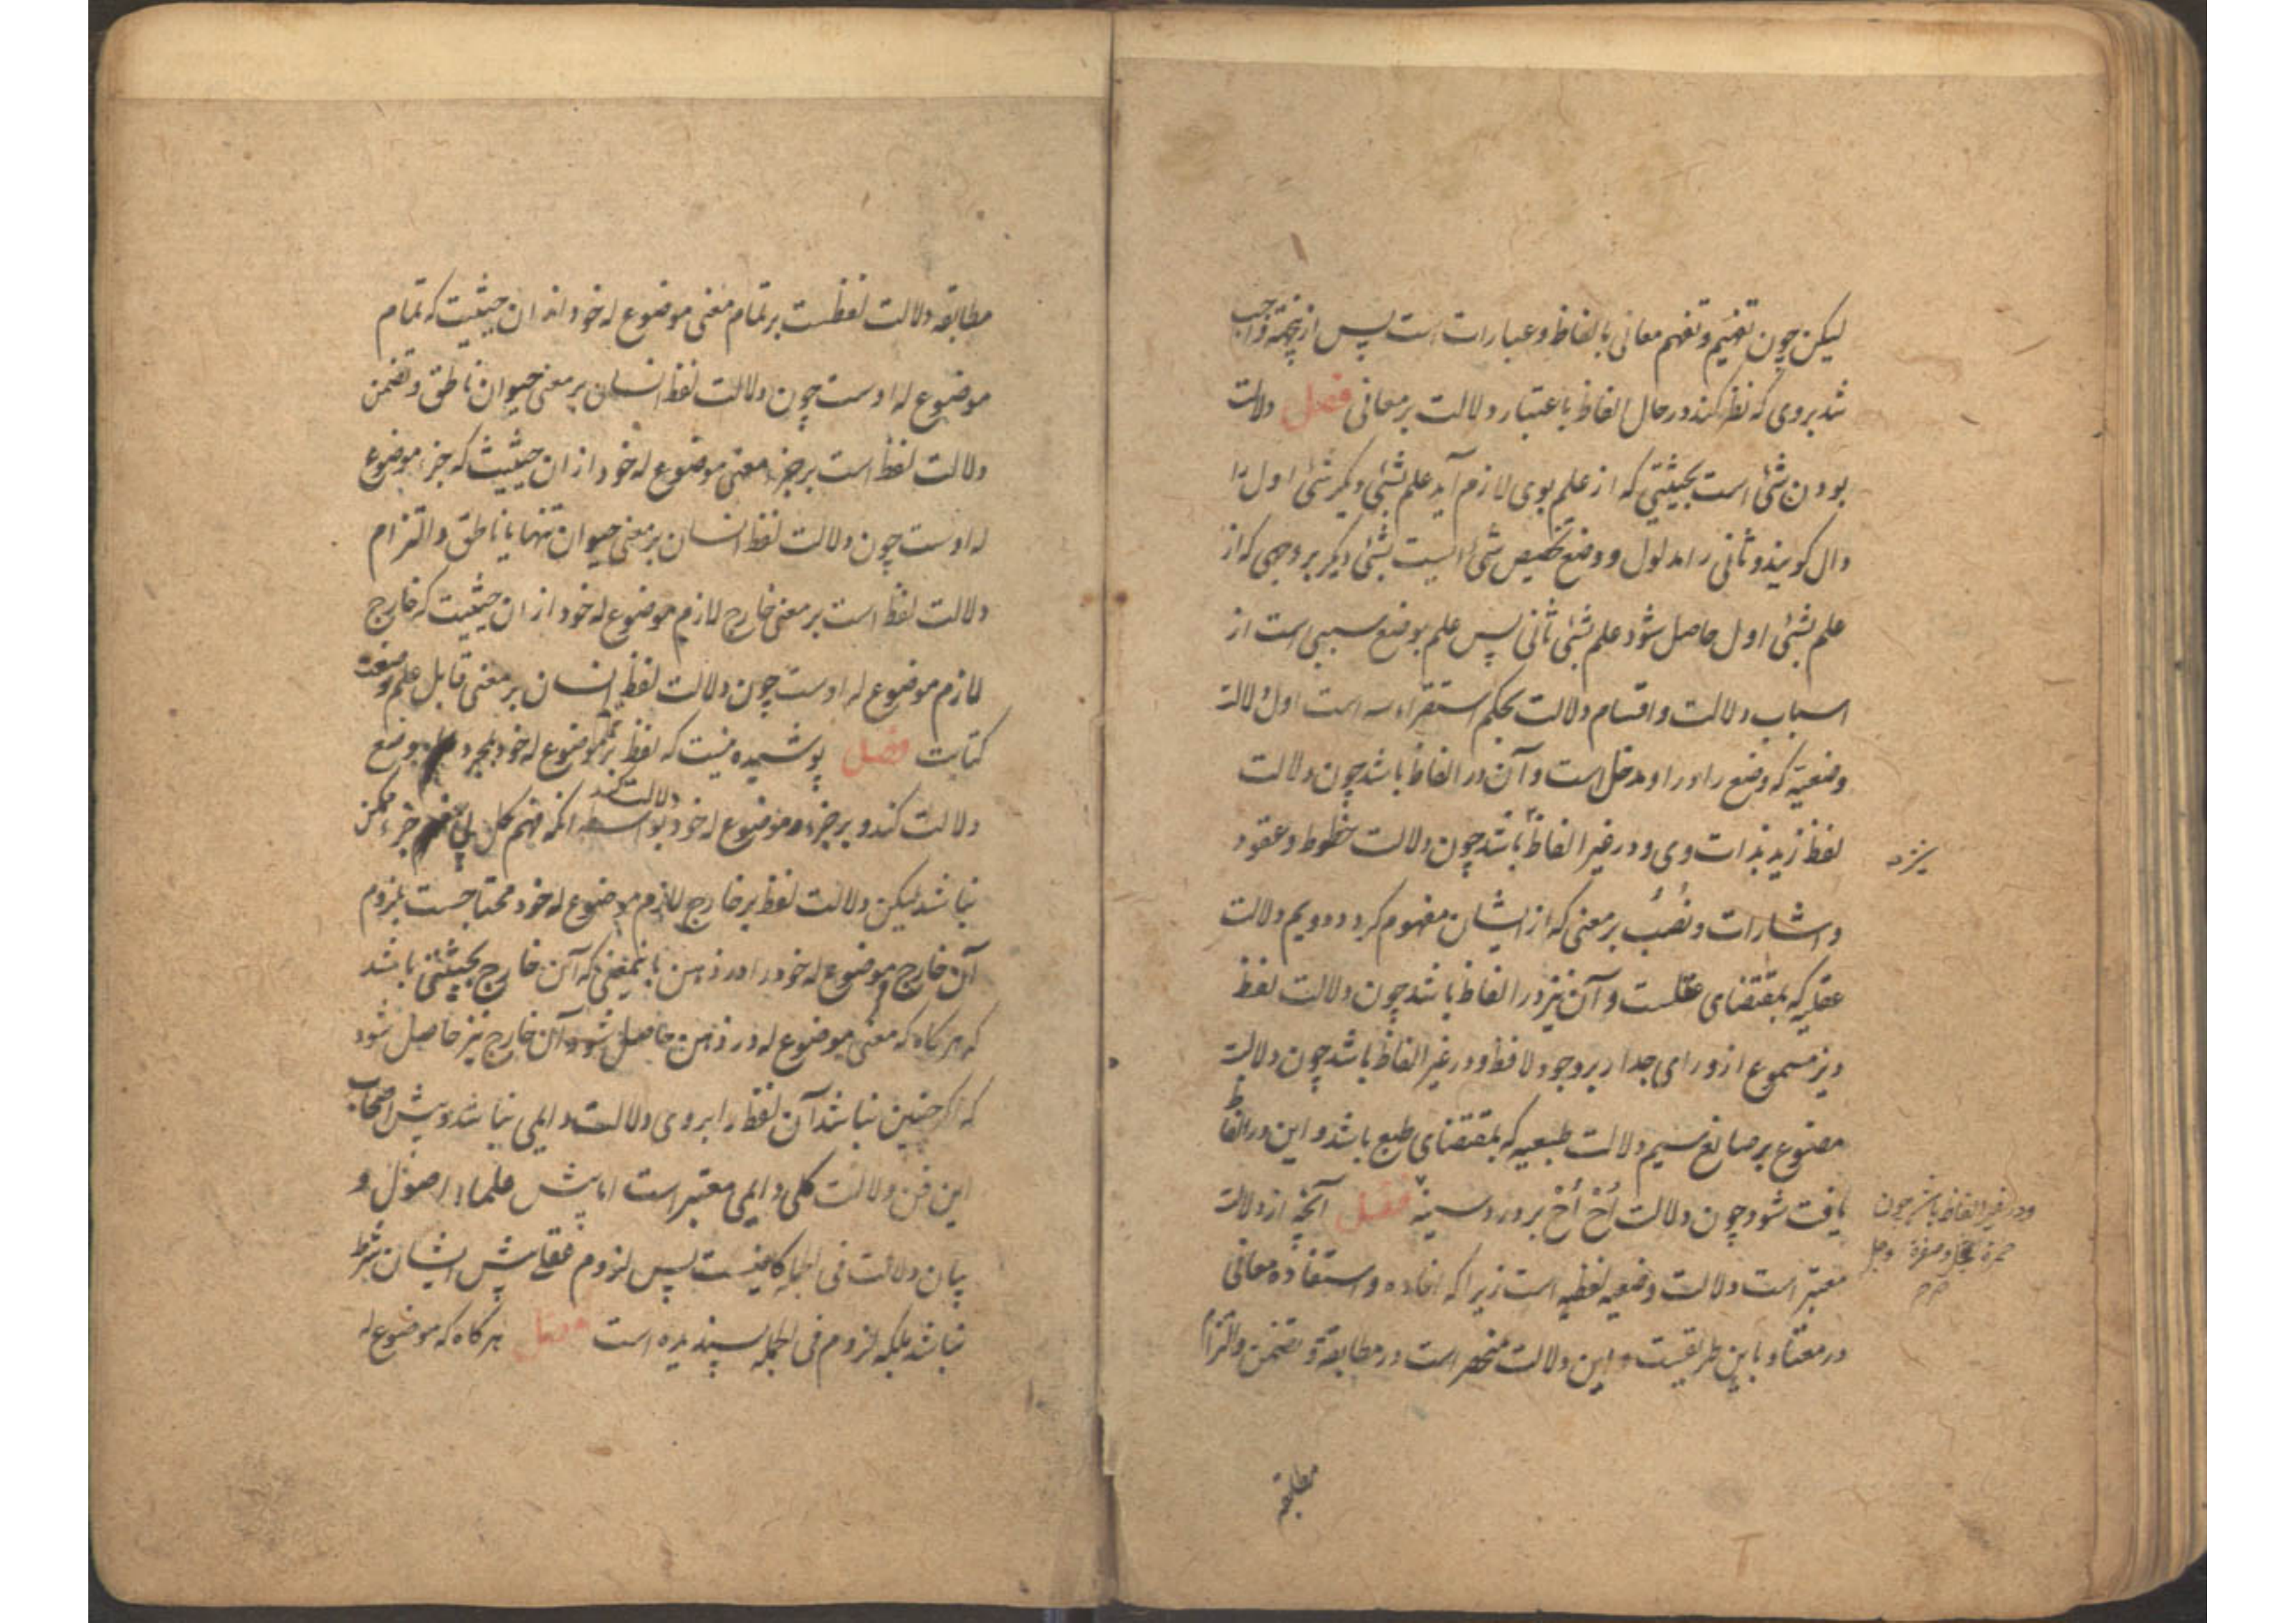 لیکن چون تفهیم و تفهم معانی بالفاظ و عبارات است پس ازینجهة واجب
شد بروی که نظر کند در حال الفاظ باعتبار دلالت بر معانی فصل دلالت
بودن شئ است بحیثیتی که از علم بوی لازم آید علم بشئ دیکر شئ اول را
دال کویند و ثانی را مدلول و وضع تخصیص شئ ایست بشئ دیکر بر وجهی که از
علم بشئ اول حاصل شود علم بشئ ثانی پس علم بوضع سببی است از
اسباب دلالت و اقسام دلالت بحکم استقراء سه است اول دلالة
وضعیه که وضع را در او مدخل است و آن در الفاظ باشد چون دلالت
لفظ زید بذات وی و در غیر الفاظ باشد چون دلالت خطوط و عقود
و اشارات و نصب بر معنی که از ایشان مفهوم کردد دویم دلالت
عقلیه که بمقتضای عقلست و آن نیز در الفاظ باشد چون دلالت لفظ
دیز مسموع از ورای جدار بر وجود لافظ و در غیر الفاظ باشد چون دلالت
مصنوع بر صانع سیم دلالت طبعیه که بمقتضای طبع باشد و این در الفاظ
یافت شود چون دلالت أخ أخ بر درد سینه فصل آنچه از دلالت
معتبر است دلالت وضعیه لفظیه است زیرا که افاده و استفاده معانی
در معتاد باین طریقست و این دلالت منحصر است در مطابقة و تضمن و التزام
و در غیر الفاظ باشد چون
حمرة خجل و صفرة وجل
مطابقه
مطابقه دلالت لفظست بر تمام معنی موضوع له خود از ان حیثیت که تمام
موضوع له اوست چون دلالت لفظ انسان بر معنی حیوان ناطق و تضمن
دلالت لفظ است بر جزء معنی موضوع له خود از ان حیثیت که جزء موضوع
له اوست چون دلالت لفظ انسان بر معنی حیوان تنها یا ناطق و التزام
دلالت لفظ است بر معنی خارج لازم موضوع له خود از ان حیثیت که خارج
لازم موضوع له اوست چون دلالت لفظ انسان بر معنی قابل علم و صنعت
کتابت فصل پوشیده نیست که لفظ بر تمام موضوع له خود بمجرد وضع
دلالت کند و بر جزء موضوع له خود بواسطه دلالت کند انکه فهم کل بی فهم جزء ممکن
نباشد لیکن دلالت لفظ بر خارج لازم موضوع له خود محتاجست بلزوم
آن خارج موضوع له خود را در ذهن باینمعنی که آن خارج بحیثیتی باشد
که هر کاه که معنی موضوع له در ذهن حاصل شود آن خارج نیز حاصل شود
که اکر چنین نباشد آن لفظ را بر وی دلالت دایمی نباشد و پیش اصحاب
این فن دلالت کلی دایمی معتبر است اما پیش علماء اصول و
بیان دلالت فی الجمله کافیست پس لزوم عقلی پیش ایشان شرط
نباشد بلکه لزوم فی الجمله پسندیده است فصل هر کاه که موضوع له